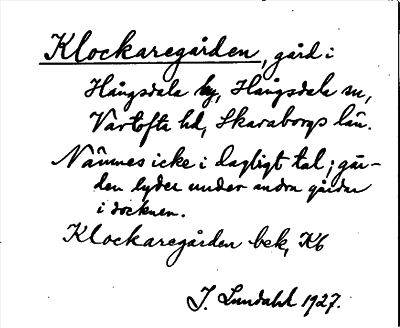 Klockaregården, gård i
Hångsdala by, Hångsdala sn,
Vartofta hd, Skaraborgs län.
Nämnes icke i dagligt tal; går-
den lyder under andra gårdar
i socknen.
Klockaregården bek, Kb
J. Lundahl 1927.